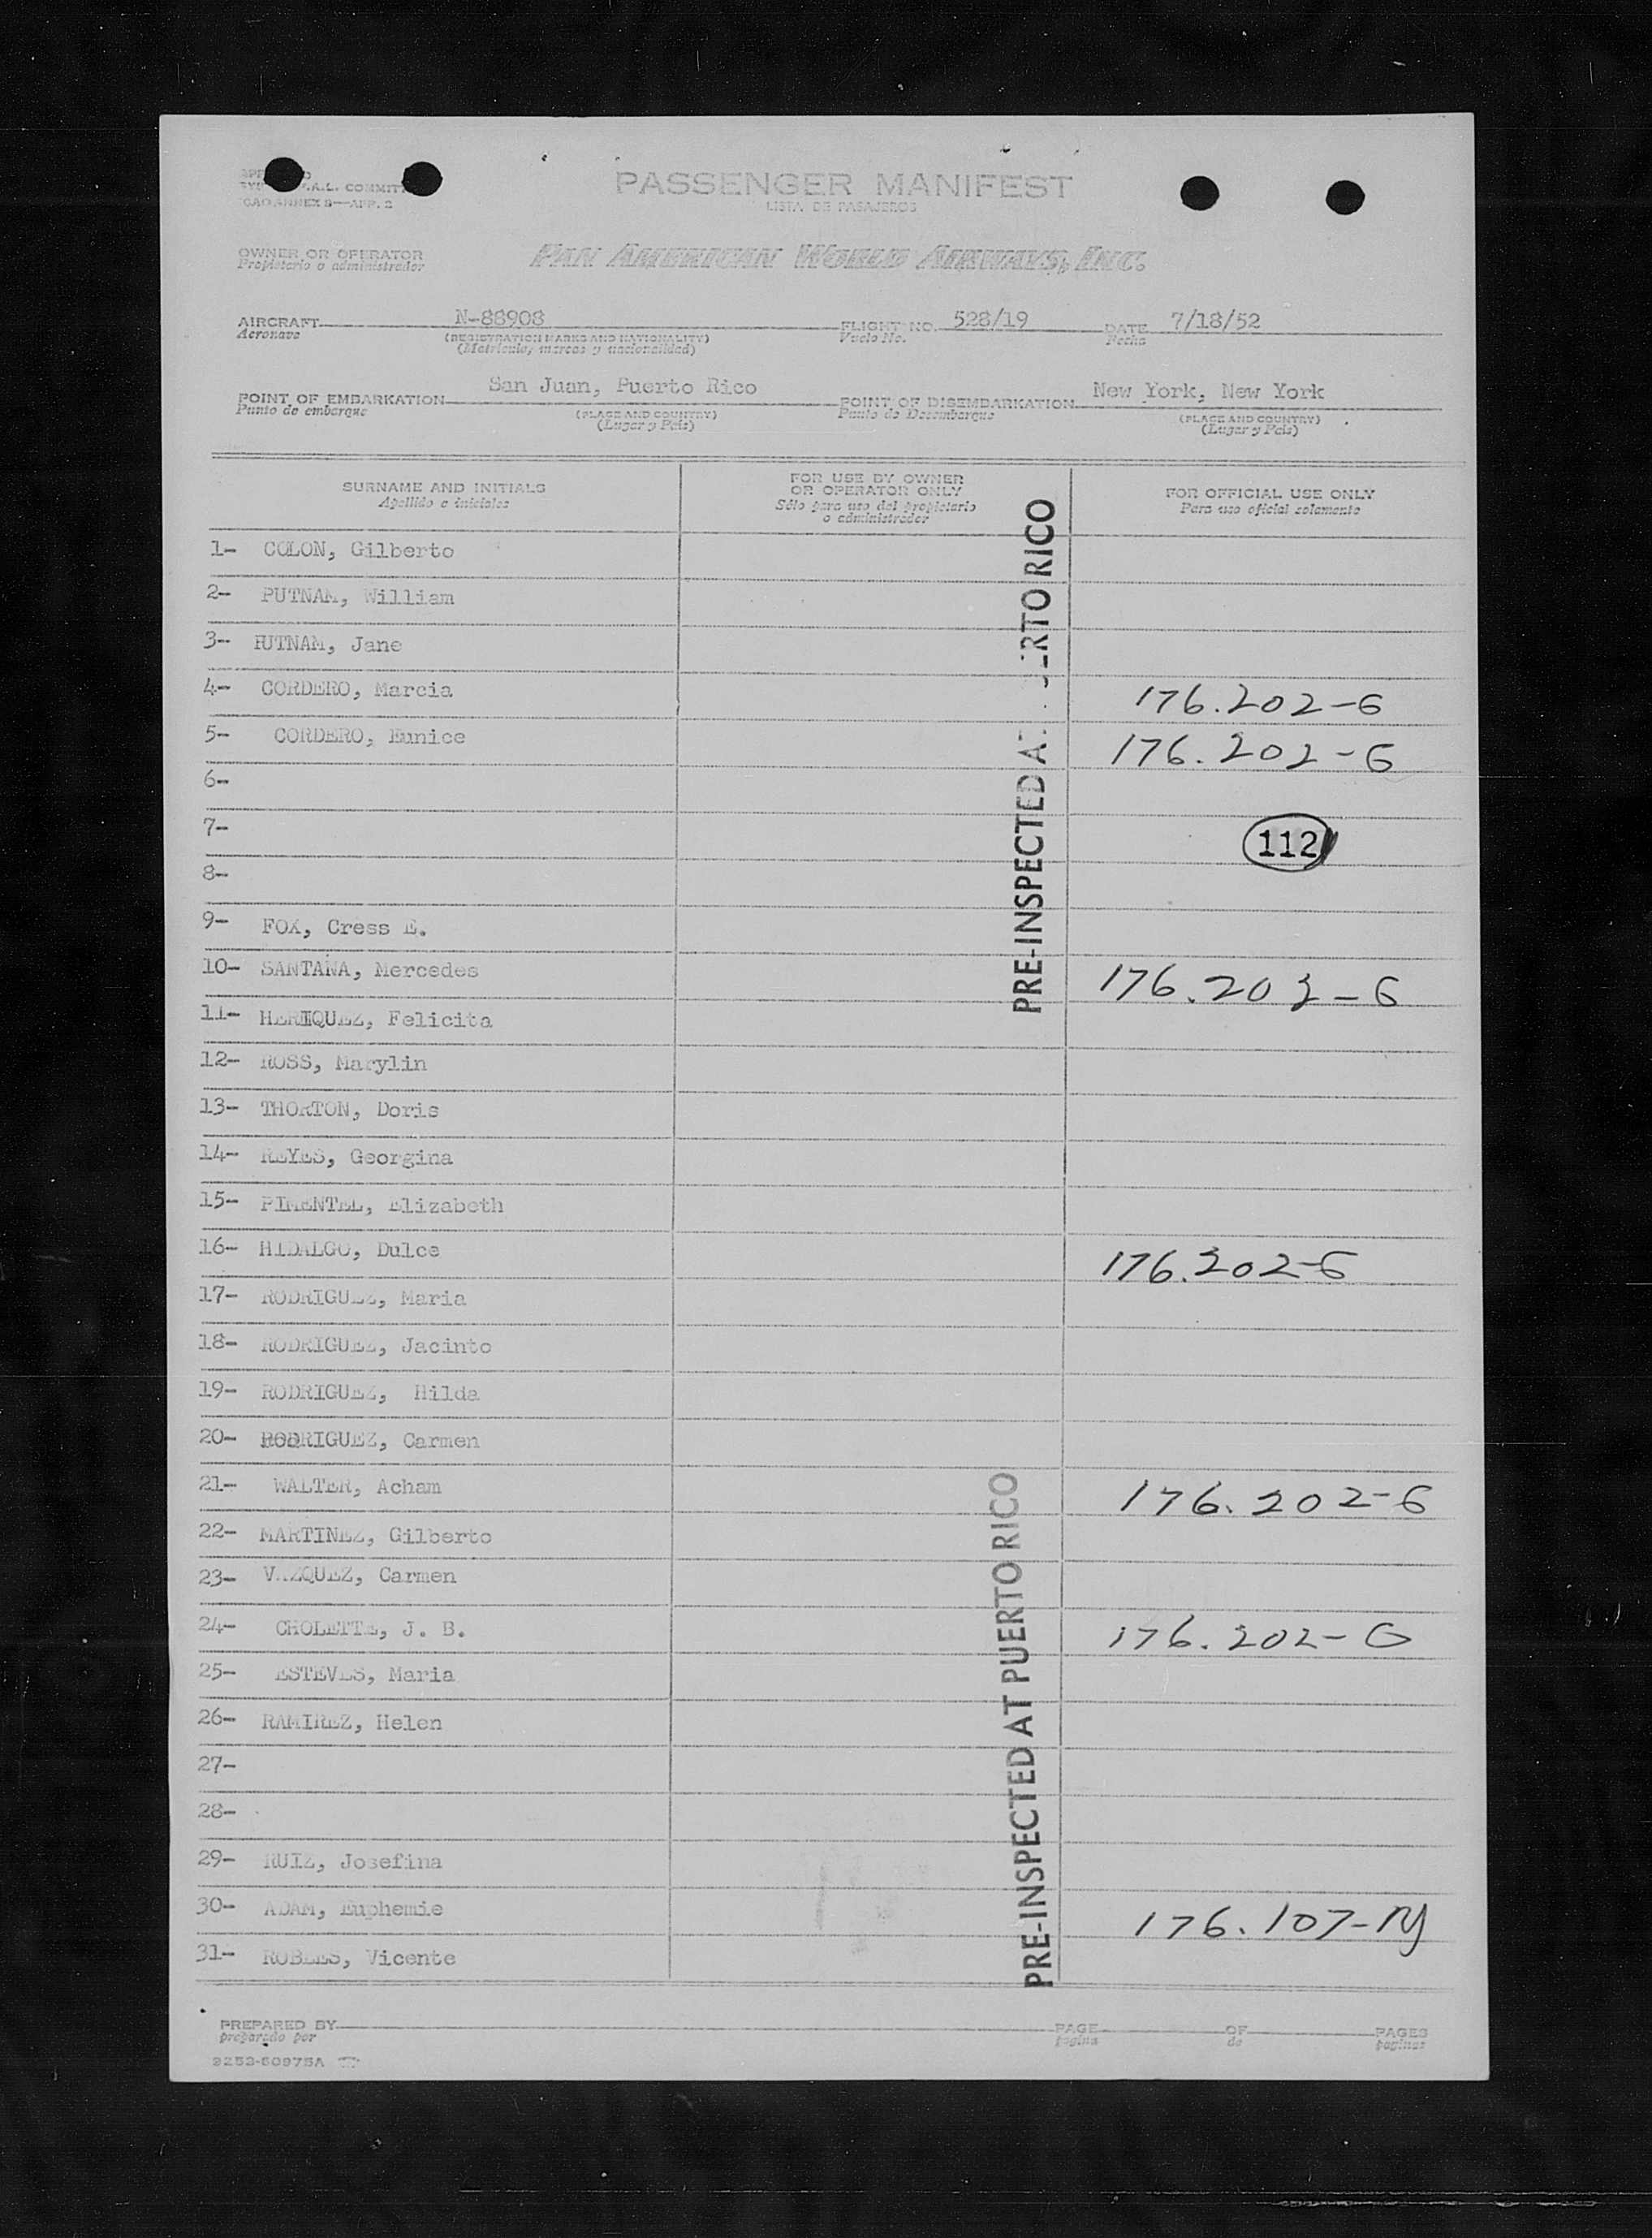 PASSENGER MANIFEST
LISTA DE PASAJEROS
F.A.L. COMMIT
ICAO ANNEX 9—APP. 2
OWNER OR OPERATOR
Propietario o administrador
PAN AMERICAN WORLD AIRWAYS, INC.
AIRCRAFT N-88908 FLIGHT NO. 528/19 DATE 7/18/52
Aeronave (REGISTRATION MARKS AND NATIONALITY) Vuelo No. Fecha
(Matrícula, marcas y nacionalidad)
POINT OF EMBARKATION San Juan, Puerto Rico POINT OF DISEMBARKATION New York, New York
Punto de embarque (PLACE AND COUNTRY) Punto de Desembarque (PLACE AND COUNTRY)
(Lugar y País) (Lugar y País)
SURNAME AND INITIALS FOR USE BY OWNER OR OPERATOR ONLY FOR OFFICIAL USE ONLY
Apellido e iniciales Sólo para uso del propietario o administrador Para uso oficial solamente
1- COLON, Gilberto
2- PUTNAM, William
3- PUTNAM, Jane
4- CORDERO, Marcia 176.202-G
5- CORDERO, Eunice 176.202-G
6-
7- 112
8-
9- FOX, Cress E.
10- SANTANA, Mercedes 176.202-G
11- HERIQUEZ, Felicita
12- ROSS, Marylin
13- THORTON, Doris
14- REYES, Georgina
15- PIMENTEL, Elizabeth
16- HIDALGO, Dulce 176.202-G
17- RODRIGUEZ, Maria
18- RODRIGUEZ, Jacinto
19- RODRIGUEZ, Hilda
20- RODRIGUEZ, Carmen
21- WALTER, Acham 176.202-G
22- MARTINEZ, Gilberto
23- VAZQUEZ, Carmen
24- CHOLETTE, J. B. 176.202-G
25- ESTEVES, Maria
26- RAMIREZ, Helen
27-
28-
29- RUIZ, Josefina
30- ADAM, Euphemie 176.107-NJ
31- ROBLES, Vicente
PRE-INSPECTED AT PUERTO RICO
PRE-INSPECTED AT PUERTO RICO
PREPARED BY PAGE OF PAGES
preparado por página de páginas
9253-60975A